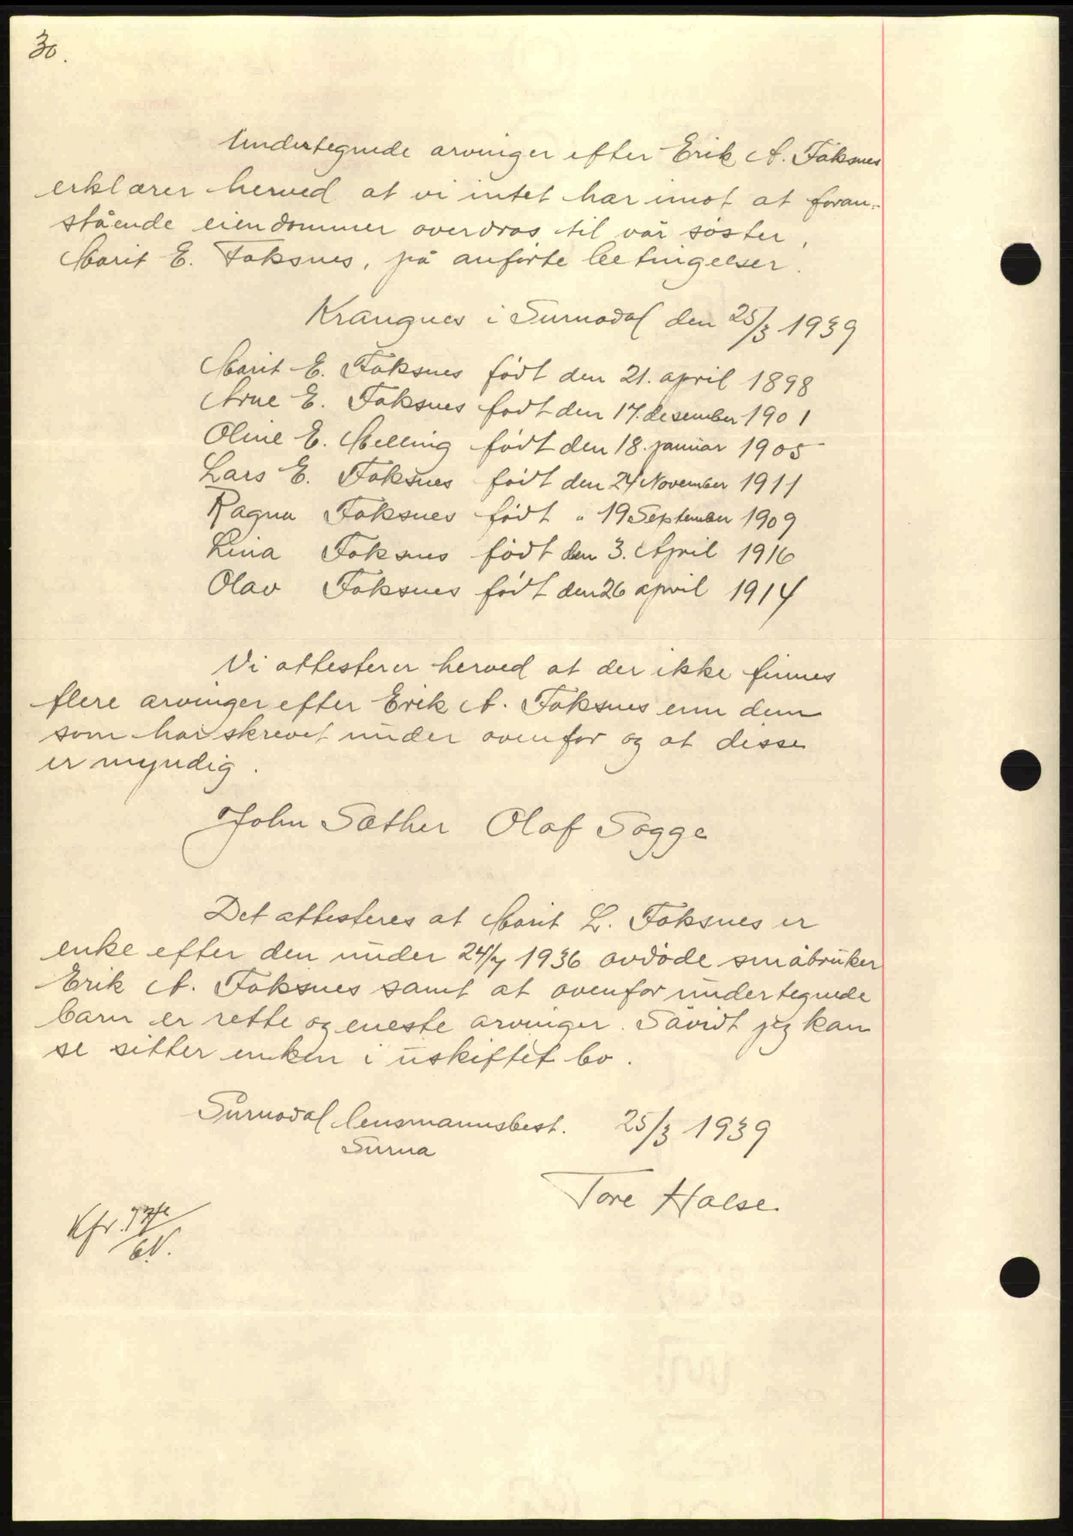 30.
Undertegnede arvinger efter Erik A. Faksnes
erklærer herved at vi intet har imot at foran-
stående eiendommer overdras til vår søster,
Marit E. Faksnes, på anførte betingelser.
Krangnes i Surnadal den 25/3 1939
Marit E. Faksnes født den 21. april 1898
Arne E. Faksnes født den 17. desember 1901
Oline E. Melling født den 18. januar 1905
Lars E. Faksnes født den 24 November 1911
Ragna Faksnes født " 19 September 1909
Lina Faksnes født den 3. April 1916
Olav Faksnes født den 26 april 1914
Vi attesterer herved at der ikke finnes
flere arvinger efter Erik A. Faksnes enn dem
som har skrevet under ovenfor og at disse
er myndig.
John Sæther Olaf Sogge
Det attesteres at Marit L. Faksnes er
enke efter den under 24/7 1936 avdøde småbruker
Erik A. Faksnes samt at ovenfor undertegnede
barn er rette og eneste arvinger. Såvidt jeg kan
se sitter enken i uskiftet bo.
Surnadal lensmannsbest. 25/3 1939
Surna
Tore Halse.
Kfr.